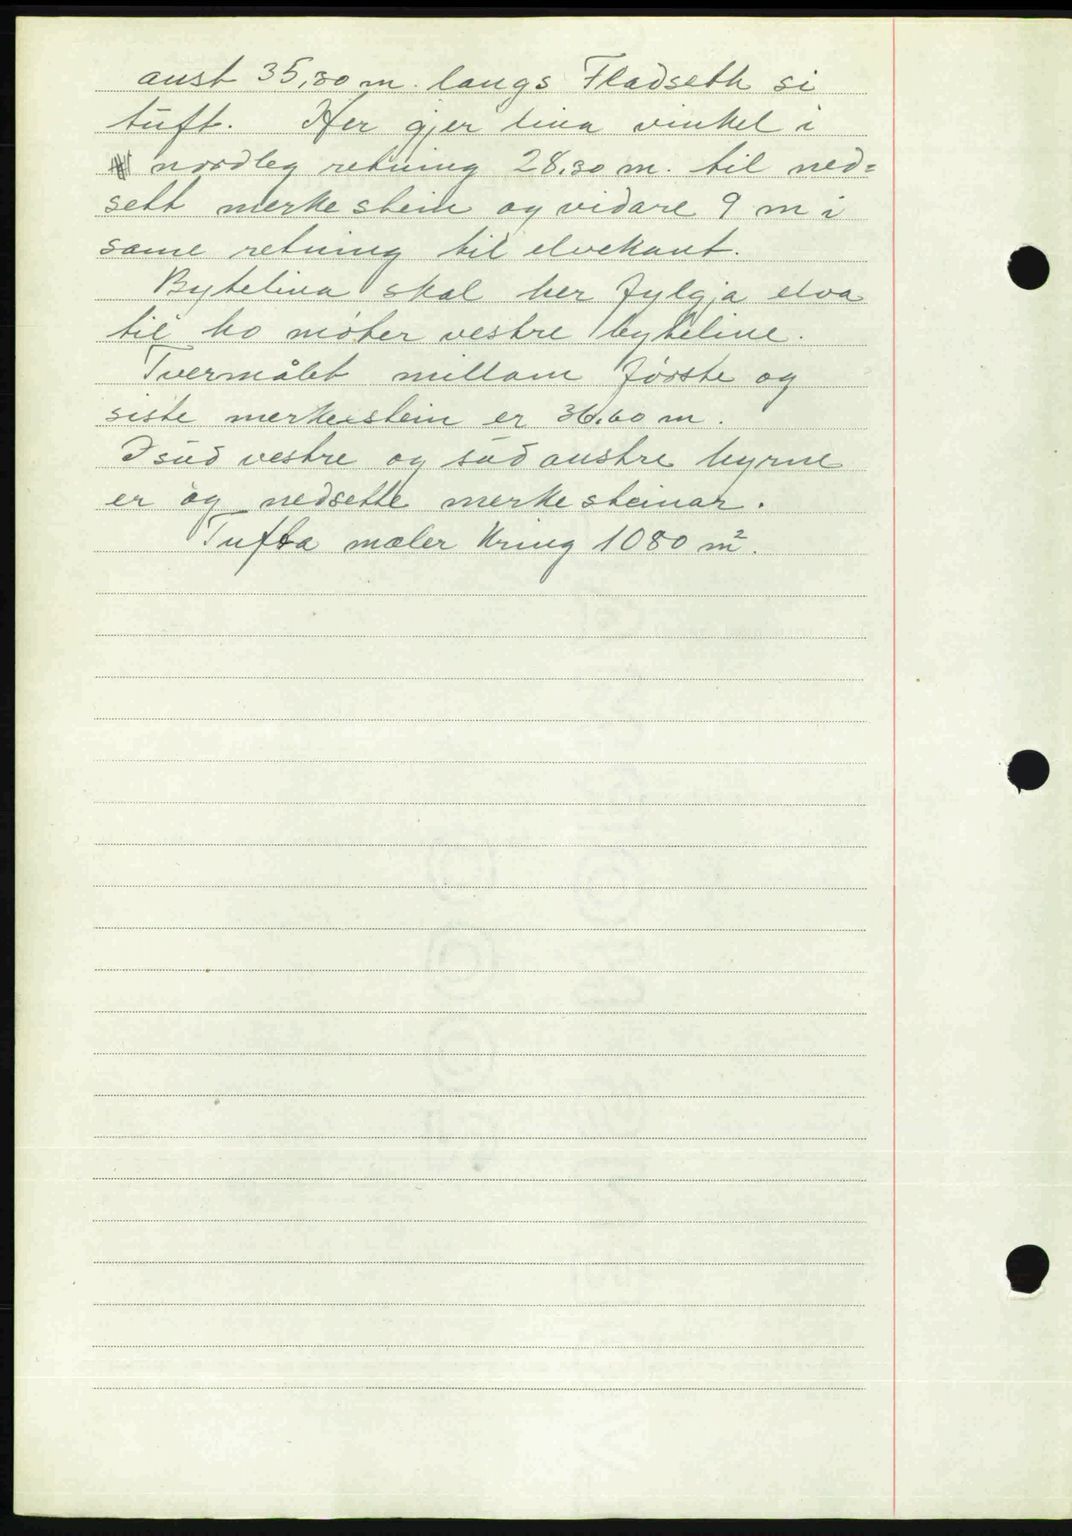 aust 35,30 m. langs Fladseth si
tuft. Her gjer lina vinkel i
nordleg retning 28.30 m. til ned=
sett merkestein og vidare 9 m i
same retning til elvekant.
Bytelina skal her fylgja elva
til ho møter vestre byteline.
Tvermålet millom første og
siste merkestein er 36.60 m.
I súd vestre og súd austre hyrne
er og nedsette merkesteinar.
Tufta mæler kring 1080 m².